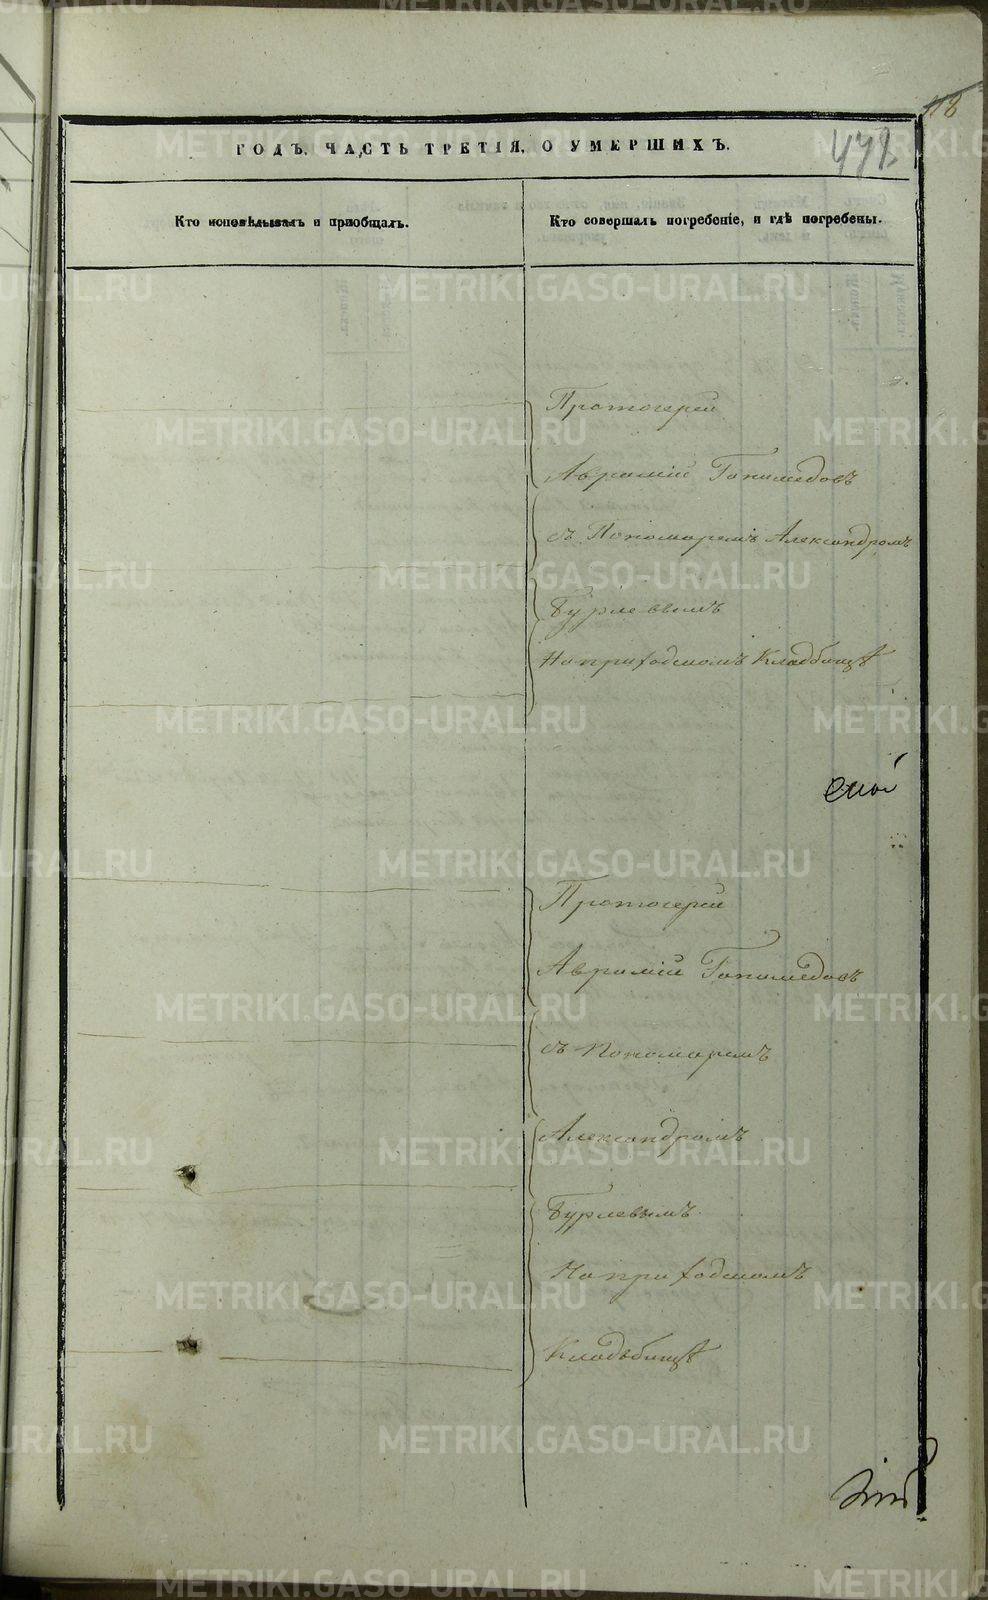 118
472
ГОДЪ, ЧАСТЬ ТРЕТІЯ, О УМЕРШИХЪ.
Кто исповѣдывалъ и пріобщалъ.
Кто совершалъ погребеніе, и гдѣ погребены.
Протоіерей
Аврамій Ганимедовъ
съ Пономаремъ Александромъ
Бурлевымъ
На приходскомъ Кладбищѣ
Протоіерей
Аврамій Ганимедовъ
съ Пономаремъ
Александромъ
Бурлевымъ
На приходскомъ
Кладбищѣ
METRIKI.GASO-URAL.RU